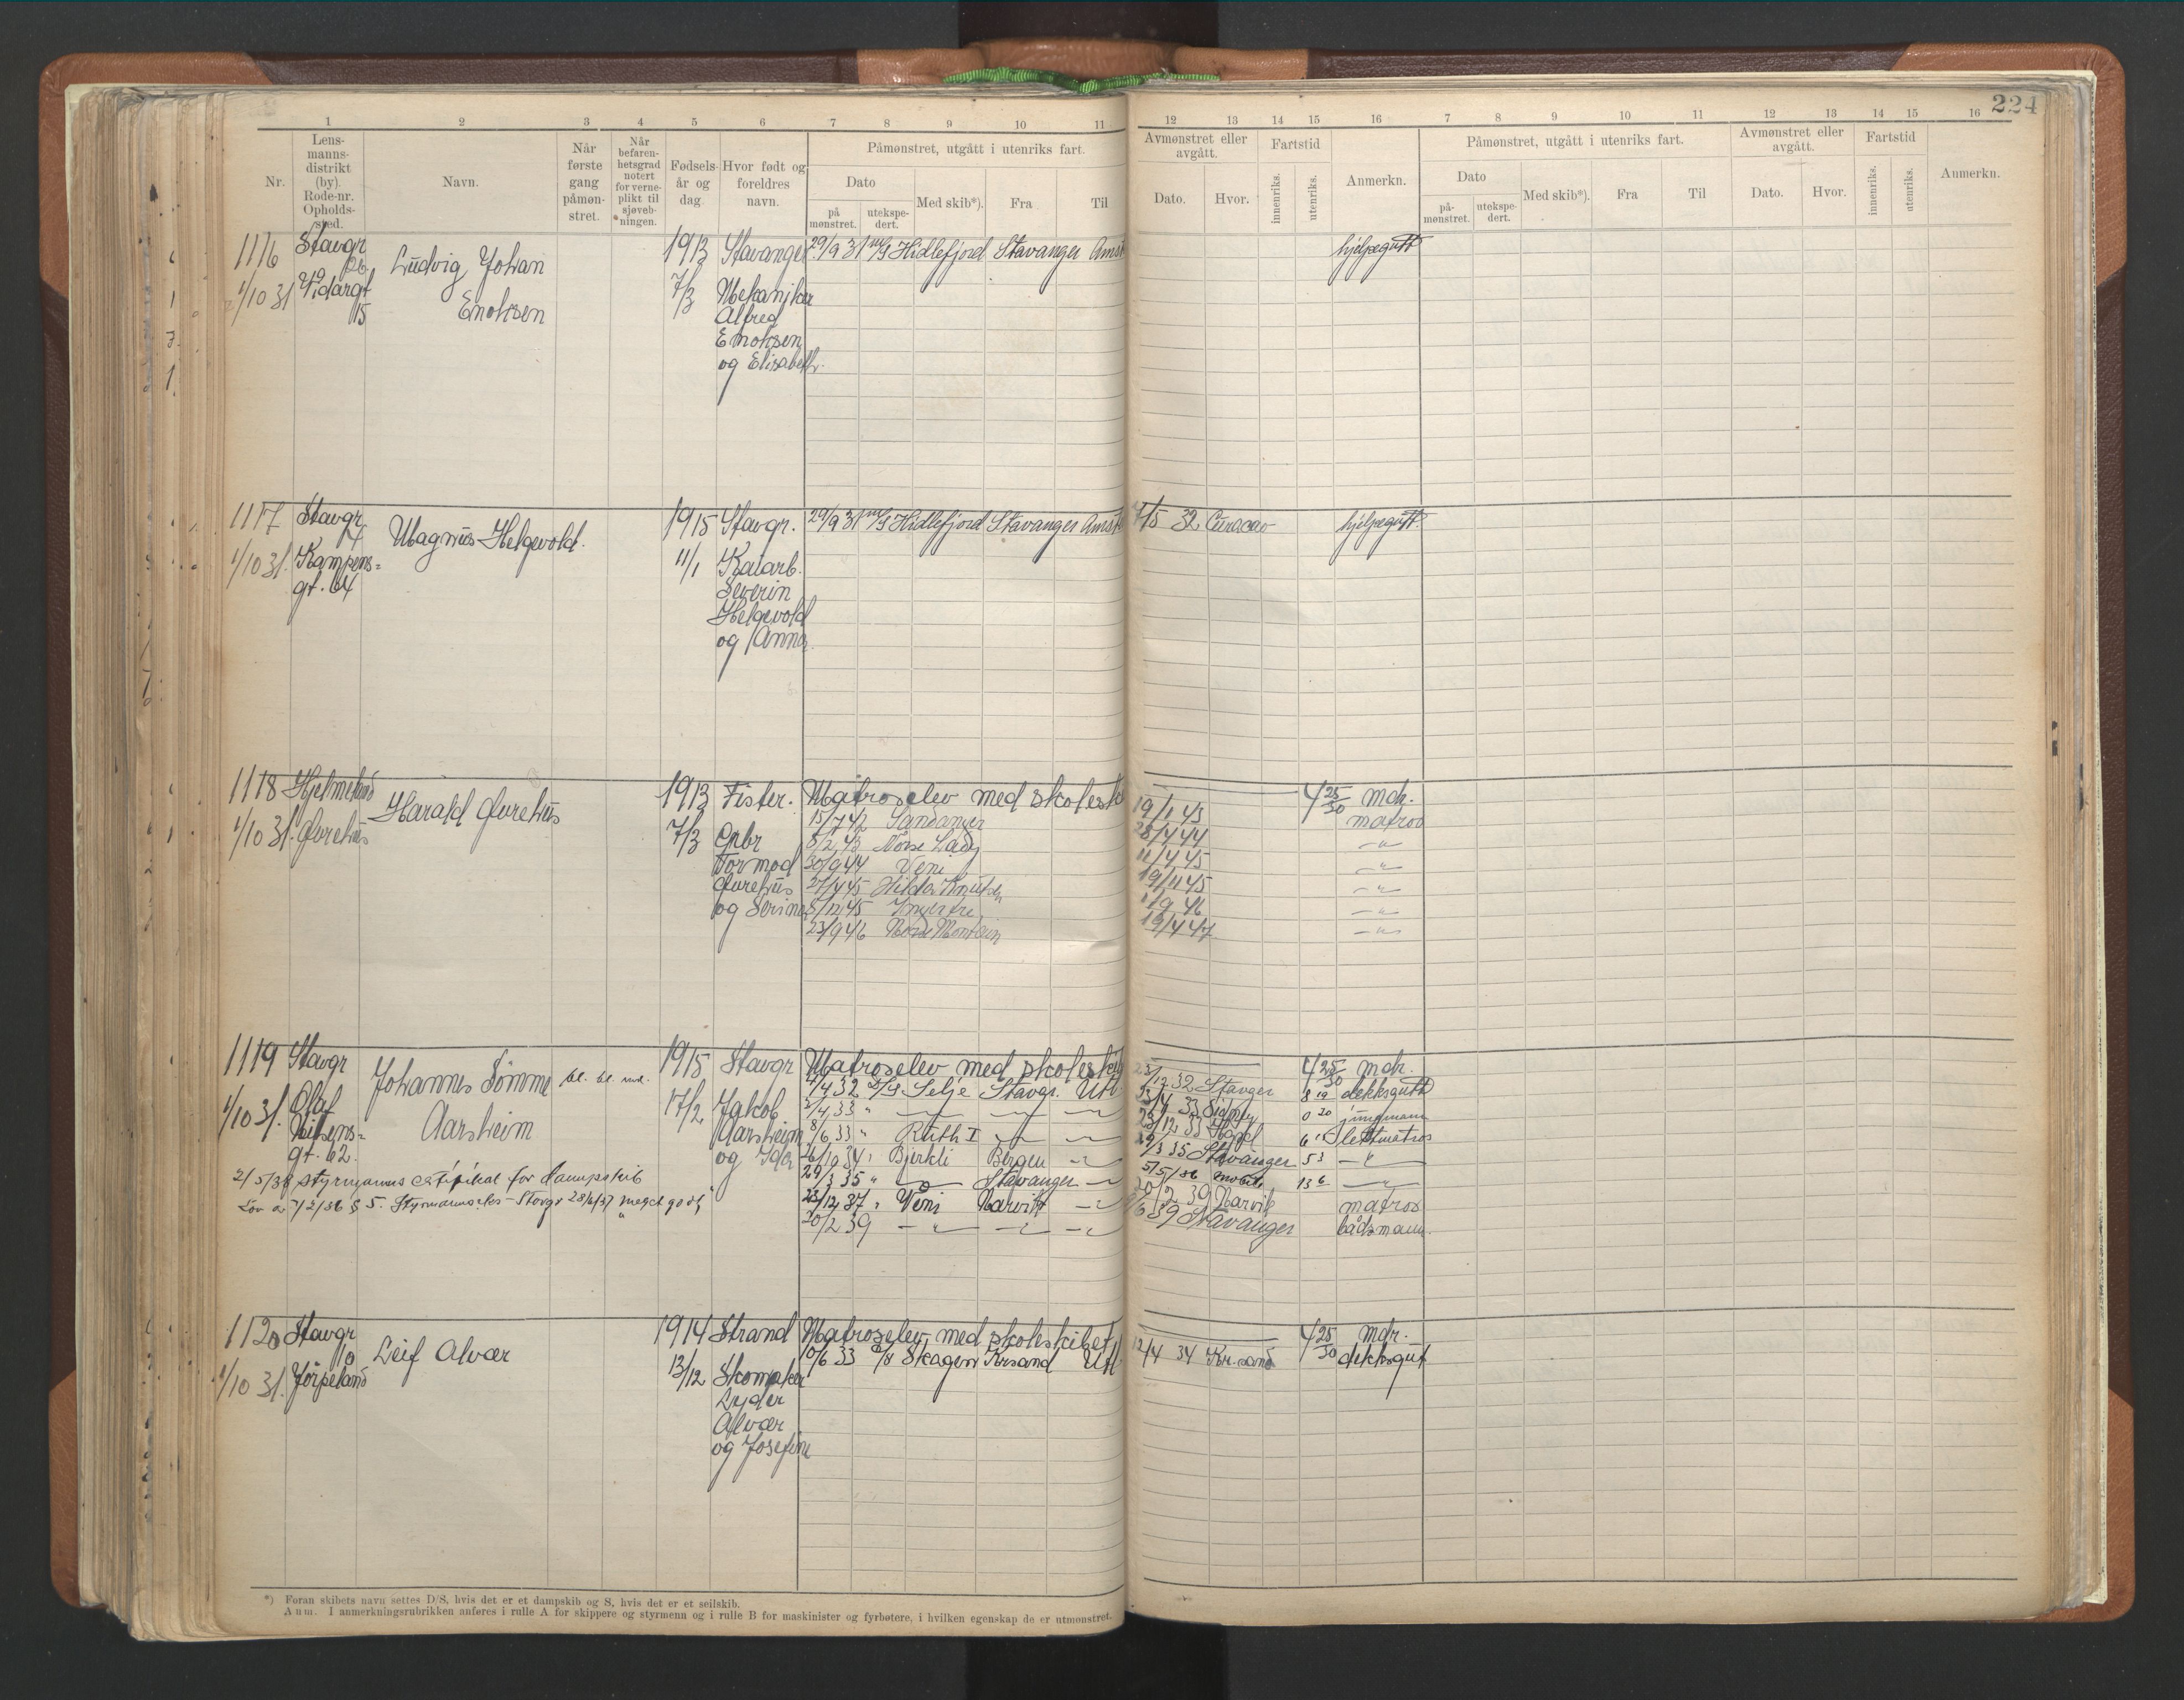 224
1 2 3 4 5 6 7 8 9 10 11 12 13 14 15 16 7 8 9 10 11 12 13 14 15 16
Nr.
Lens-
manns-
distrikt
(by).
Rode-nr.
Opholds-
sted.
Navn.
Når
første
gang
påmøn-
stret.
Når
befaren-
hetsgrad
notert
for verne-
plikt til
sjøveb-
ningen.
Fødsels-
år og
dag.
Hvor født og
foreldres
navn.
Påmønstret, utgått i utenriks fart.
Dato
på
mønstret.
utekspe-
dert.
Med skib*).
Fra
Til
Avmønstret eller
avgått.
Dato.
Hvor.
Fartstid
innenriks.
utenriks.
Anmerkn.
Påmønstret, utgått i utenriks fart.
Dato
på-
mønstret.
utekspe-
dert.
Med skib*).
Fra
Til
Avmønstret eller
avgått.
Dato.
Hvor.
Fartstid
innenriks.
utenriks.
Anmerkn.
1116 Stavgr Ludvig Johan 1913 Stavanger 29/9 31 m/s Hidlefjord Stavanger Amst hjelpegutt
1/10 31 Vidargt Enoksen 7/3 Mekaniker
15 Alfred
Enoksen
og Elisabeth.
1117 Stavgr Magnus Helgevold. 1915 Stavgr. 29/9 31 m/s Hidlefjord Stavanger Amst /5 32 Curacao hjelpegutt.
1/10 31. Kampens= 11/1 Kaiarb.
gt. 64 Severin
Helgevold
og Anna
1118 Hjelmeland Harald Furehus 1913 Fister. Matroselev med skolesk 4 25/30 mdr.
1/10 31. Furehus 7/3 Gpbr
Tormod
Furehus
og Serine
15/7 42 Sandanger 19/1 43 matros
8/2 43 Norse Lady 28/4 44 - " -
30/9 44 Veni 11/4 45 - " -
27/4 45 Hilda Knutsen 19/11 45 - " -
8/12 45 Ingerfre 9 46 - " -
23/9 46 Norse Mountain 19/4 47 - " -
1119 Stavgr Johannes Sømme 1915 Stavgr Matroselev med skoleskib 4 25/30 mdr.
1/10 31. Olaf Aarsheim 17/2 Jakob
Aarsheim
gt. 62. og Ida
/4 32 D/S Selje Stavgr. Utl. /12 32 Stavger 8 19 dekksgutt
/4 33 " /4 33 Sidney 0 20 jungmann
8/6 33 " Ruth I /12 33 lettmatros
/10 34 " Bjerkli Bergen 29/3 35 Stavanger 5 3 - " -
29/3 35 " Stavanger 5/5/36 Mobile 13 6 - " -
/12 37 " Veni Narvik 20/2 39 Narvik matros
20/2 39 - " - /6 39 Stavanger båtsmann.
2/5/38 styrmanns certifikat for dampskib
Lov av 7/2/36 § 5. Styrmannseks - Stavgr 28/6/37 meget godt
1120 Stavgr Leif Alvær 1914 Strand Matroselev med skoleskibet 4 25/30 mdr.
10
1/10 31. Jørpeland 13/12 Skomaker
Lyder
Alvær
og Josefine
/6 33 Skagern Krsand Utl 12/4 34 Kr.sand dekksgut
*) Foran skibets navn settes D/S, hvis det er et dampskib og S, hvis det er et seilskib.
Anm. I anmerkningsrubrikken anføres i rulle A for skippere og styrmenn og i rulle B for maskinister og fyrbøtere, i hvilken egenskap de er utmønstret.